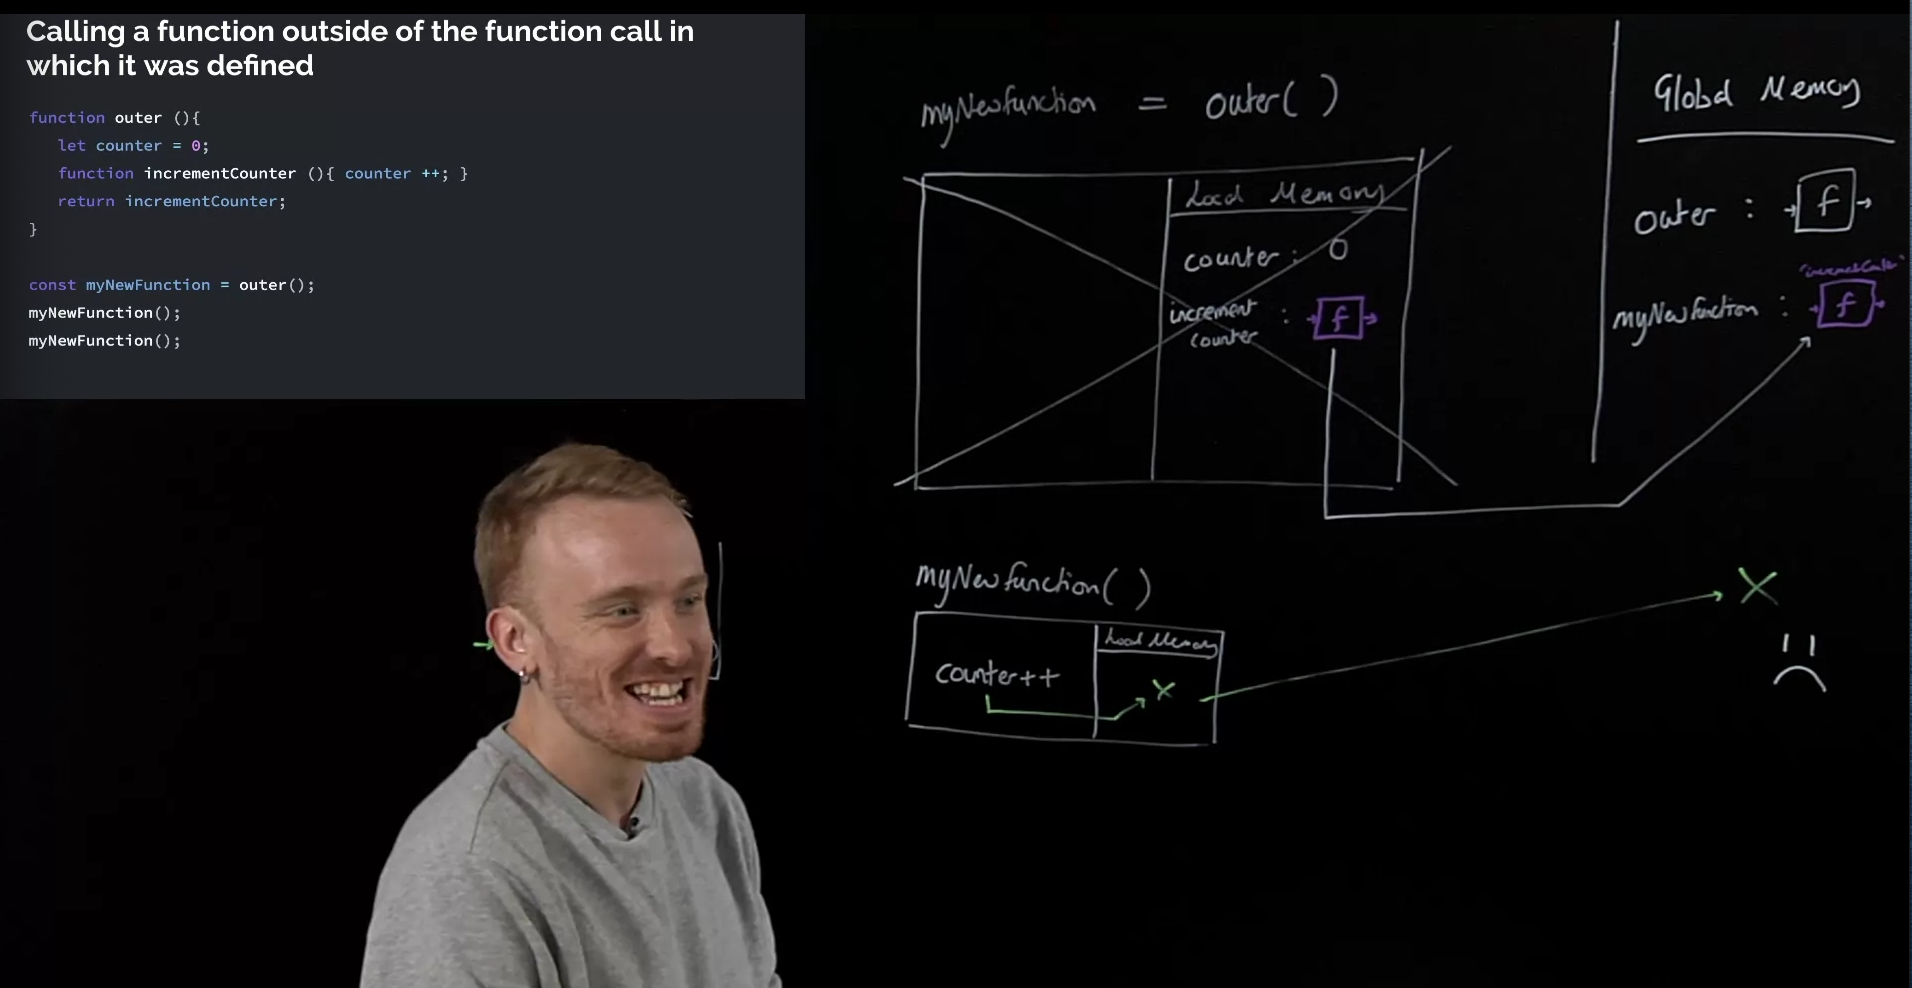 Calling a function outside of the function call in
which it was defined
function outer (){
let counter = 0;
function incrementCounter (){ counter ++; }
return incrementCounter;
}
const myNewFunction = outer();
myNewFunction();
myNewFunction();
myNewfunction = outer( )
Local Memory
counter : 0
increment : f
counter
Global Memory
outer : f
myNewfunction : f
myNewfunction( )
Local Memory
counter++